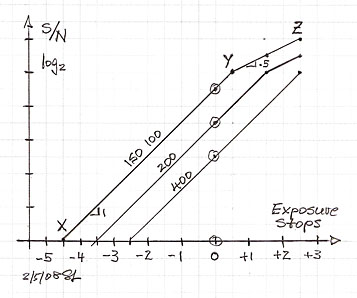 S/N
log2
Z
Y
.5
ISO 100
200
400
X
1
Exposure
Stops
-5 -4 -3 -2 -1 0 +1 +2 +3